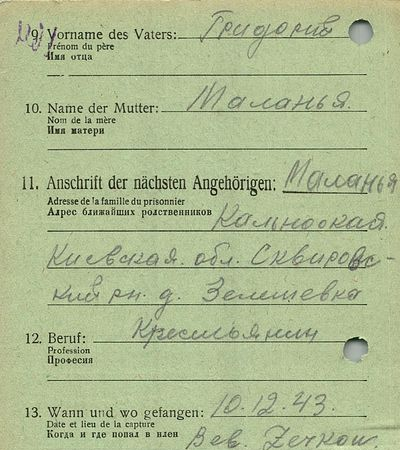 9. Vorname des Vaters: Григорий
Prénom du père
Имя отца
10. Name der Mutter: Маланья
Nom de la mère
Имя матери
11. Anschrift der nächsten Angehörigen: Маланья
Adresse de la famille du prisonnier
Адрес ближайших родственников
Киевская. обл. Сквировс-
кий рн. д.
12. Beruf: Крестьянин
Profession
Професия
13. Wann und wo gefangen: 10.12.43.
Date et lieu de la capture
Когда и где попал в плен